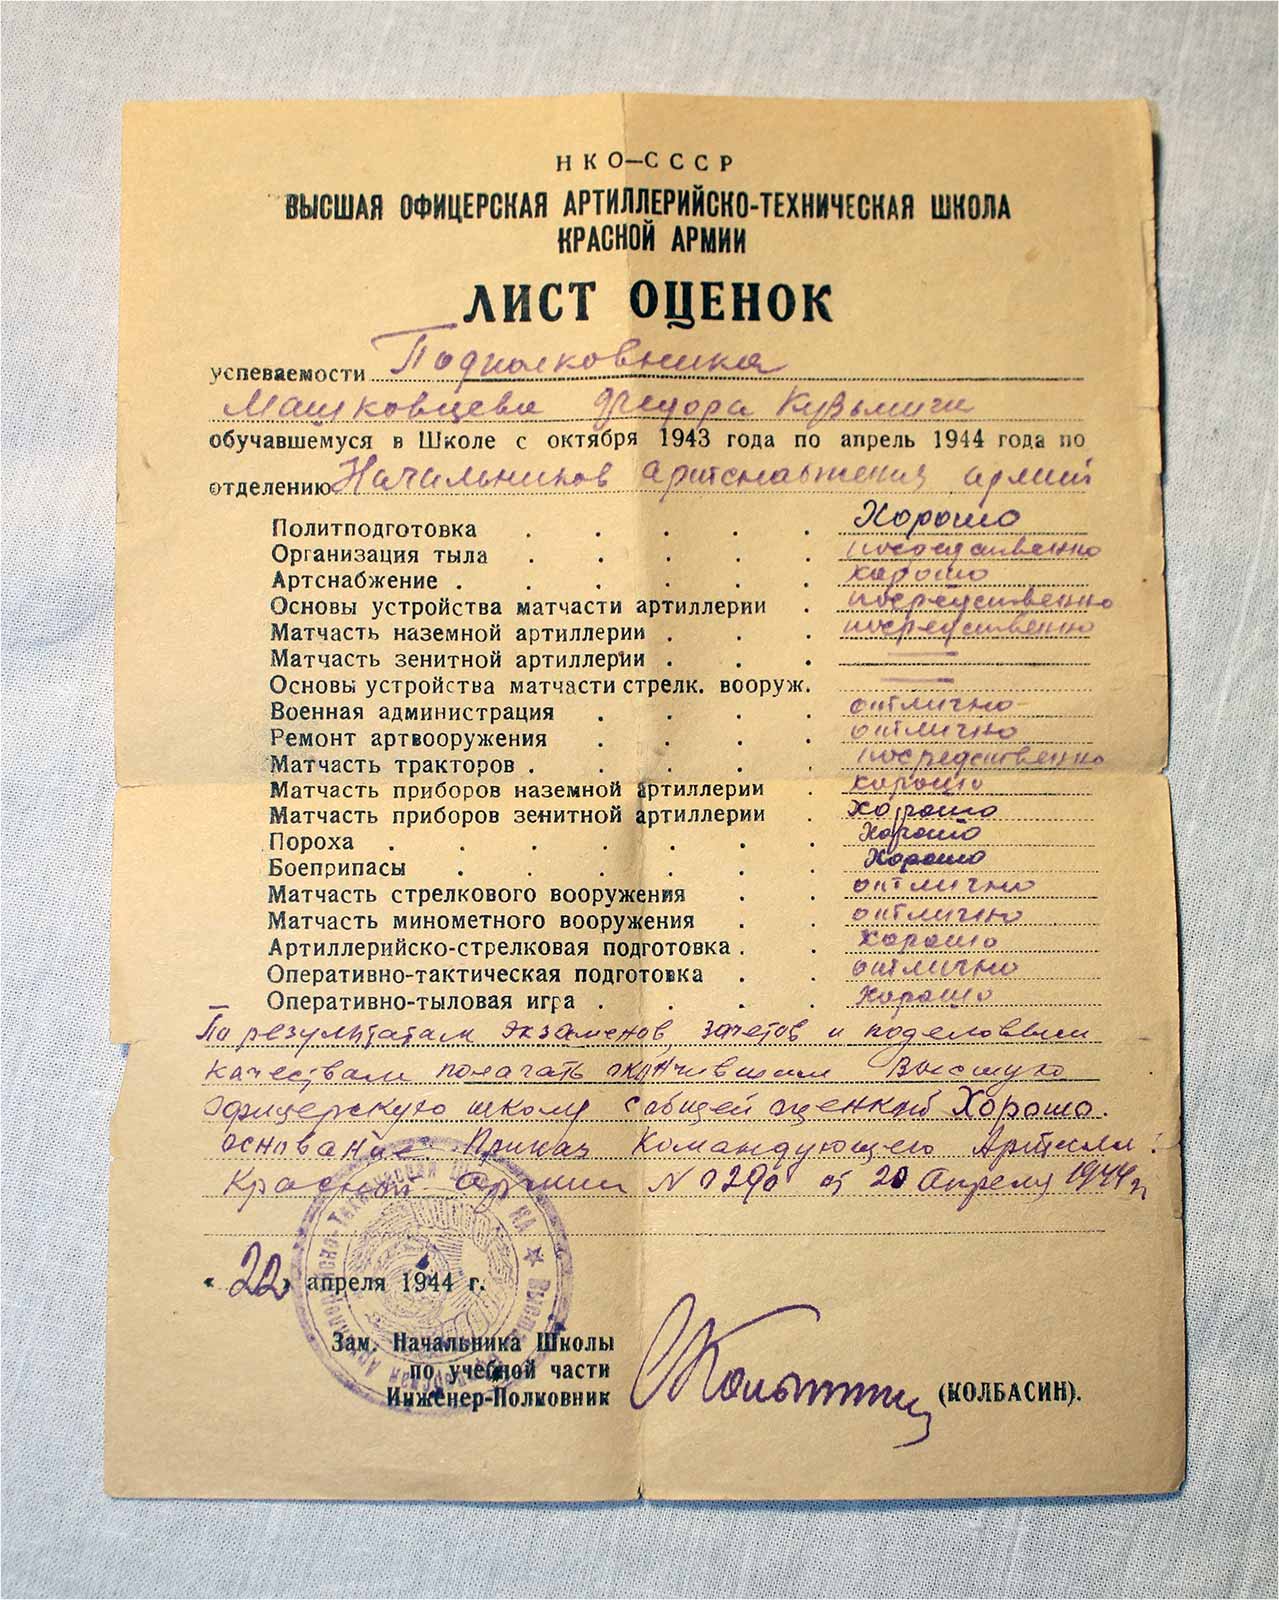 НКО—СССР
ВЫСШАЯ ОФИЦЕРСКАЯ АРТИЛЛЕРИЙСКО-ТЕХНИЧЕСКАЯ ШКОЛА
КРАСНОЙ АРМИИ
ЛИСТ ОЦЕНОК
успеваемости Подполковника
Машковцева Федора Кузьмича
обучавшемуся в Школе с октября 1943 года по апрель 1944 года по
отделению Начальников артснабжения армий
Политподготовка . . . . . Хорошо
Организация тыла . . . . . посредственно
Артснабжение . . . . . . хорошо
Основы устройства матчасти артиллерии . посредственно
Матчасть наземной артиллерии . . . посредственно
Матчасть зенитной артиллерии . . . —
Основы устройства матчасти стрелк. вооруж. —
Военная администрация . . . . отлично
Ремонт артвооружения . . . . отлично
Матчасть тракторов . . . . . посредственно
Матчасть приборов наземной артиллерии . хорошо
Матчасть приборов зенитной артиллерии . хорошо
Пороха . . . . . . . Хорошо
Боеприпасы . . . . . . Хорошо
Матчасть стрелкового вооружения . . отлично
Матчасть минометного вооружения . . отлично
Артиллерийско-стрелковая подготовка . . Хорошо
Оперативно-тактическая подготовка . . отлично
Оперативно-тыловая игра . . . . Хорошо
По результатам экзаменов, зачетов и поделовым
качествам полагать окончившим Высшую
офицерскую школу с общей оценкой Хорошо.
основание Приказ Командующего Артилл:
Красной Армии № 0290 от 20 Апреля 1944 г.
« 22 » апреля 1944 г.
Зам. Начальника Школы
по учебной части
Инженер-Полковник (КОЛБАСИН).